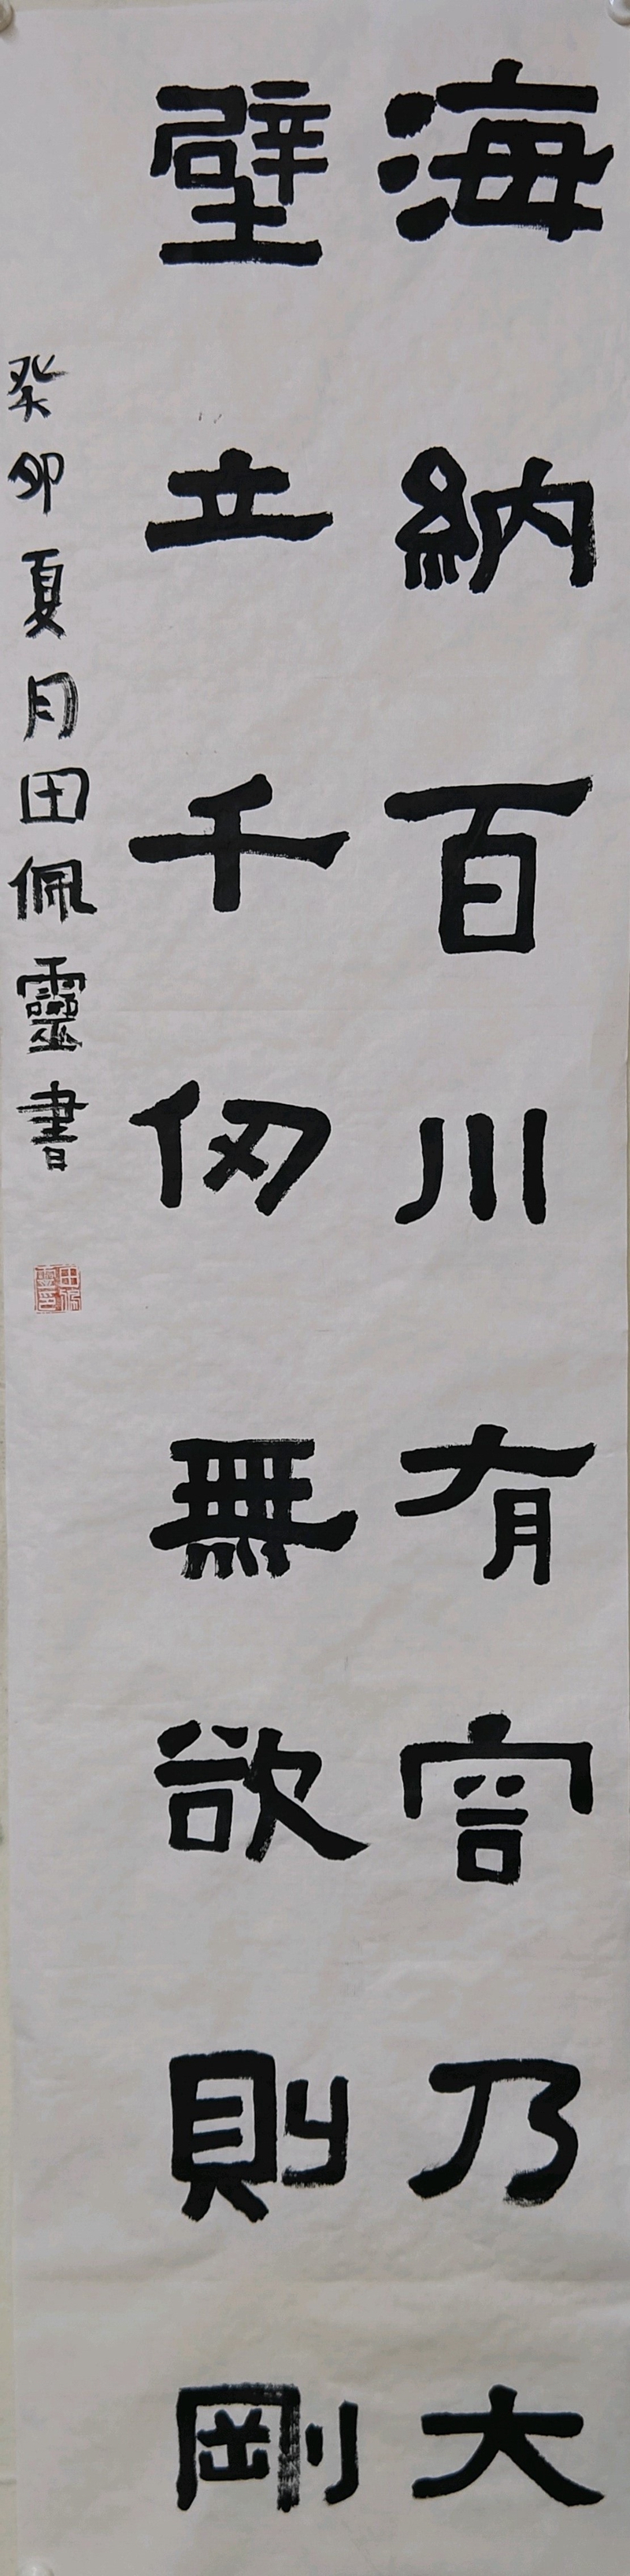 海納百川有容乃大
壁立千仞無欲則剛
癸卯夏月田佩靈書